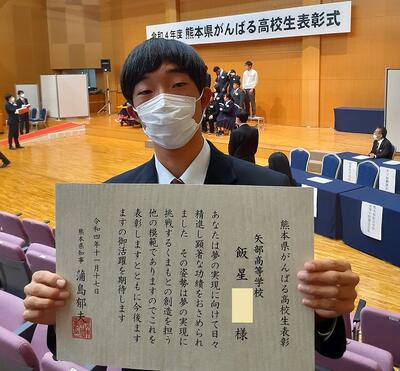 令和4年度 熊本県がんばる高校生表彰式
熊本県がんばる高校生表彰
矢部高等学校
飯星 様
あなたは夢の実現に向けて日々
精進し顕著な功績をおさめられ
ました その姿勢は夢の実現に
挑戦するくまもとの創造を担う
他の模範でありますのでこれを
表彰しますとともに今後ます
ますの御活躍を期待します
令和四年十一月十七日
熊本県知事 蒲島郁夫